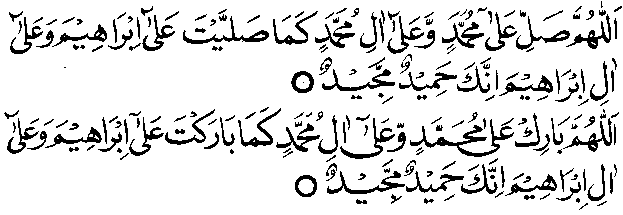 اَللّٰهُمَّ صَلِّ عَلٰى مُحَمَّدٍ وَّعَلٰٓى اٰلِ مُحَمَّدٍ كَمَا صَلَّيْتَ عَلٰٓى اِبْرَاهِيْمَ وَعَلٰٓى
اٰلِ اِبْرَاهِيْمَ اِنَّكَ حَمِيْدٌ مَّجِيْدٌ ○
اَللّٰهُمَّ بَارِكْ عَلٰى مُحَمَّدٍ وَّعَلٰٓى اٰلِ مُحَمَّدٍ كَمَا بَارَكْتَ عَلٰٓى اِبْرَاهِيْمَ وَعَلٰٓى
اٰلِ اِبْرَاهِيْمَ اِنَّكَ حَمِيْدٌ مَّجِيْدٌ ○